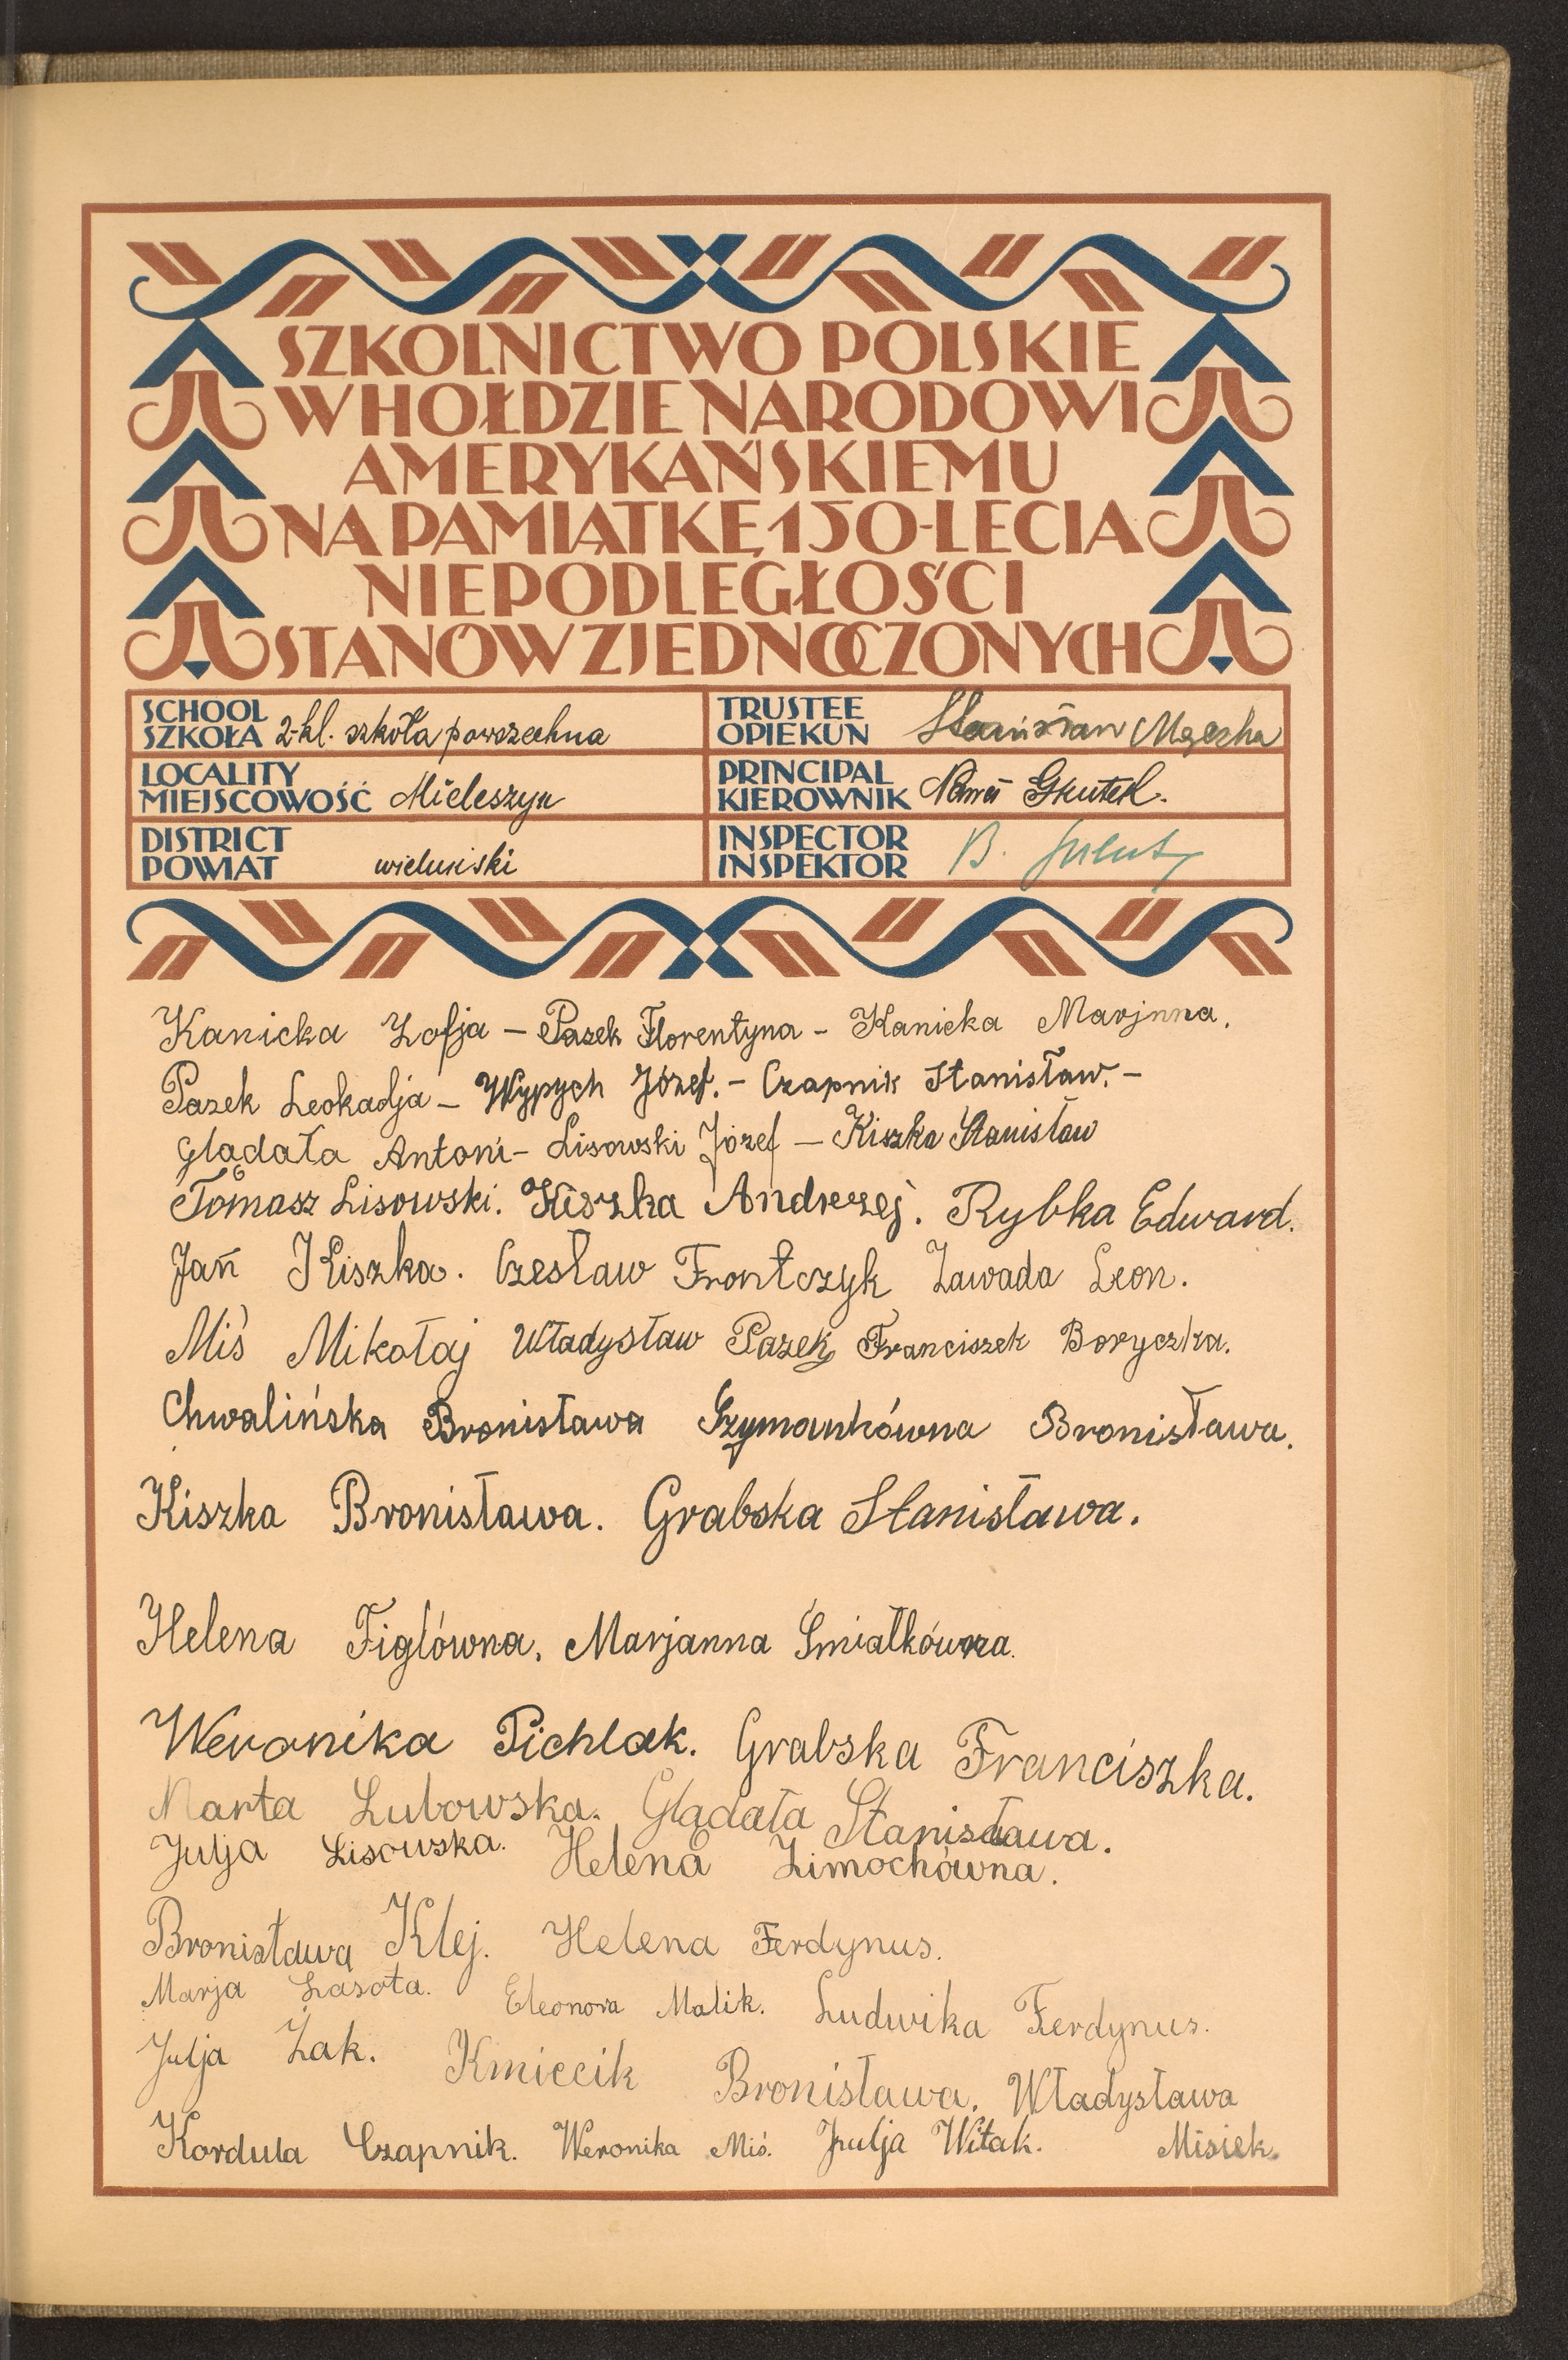 SZKOLNICTWO POLSKIE
W HOŁDZIE NARODOWI
AMERYKAŃSKIEMU
NA PAMIĄTKĘ 150-LECIA
NIEPODLEGŁOŚCI
STANÓW ZJEDNOCZONYCH
SCHOOL
SZKOŁA 2-kl. szkoła powszechna
TRUSTEE
OPIEKUN Stanisław
LOCALITY
MIEJSCOWOŚĆ Mieleszyn
PRINCIPAL
KIEROWNIK
DISTRICT
POWIAT wieluński
INSPECTOR
INSPEKTOR B.
Kanicka Zofja – Pazek Florentyna – Kanicka Marjnna.
Pazek Leokadja – Wypych Józef. – Czapnik Stanisław. –
Glądała Antoni – Lisowski Józef – Kiszka Stanisław
Tomasz Lisowski. Kiszka Andrzej. Rybka Edward.
Jan Kiszka. Czesław Frontczyk Zawada Leon.
Miś Mikołaj Władysław Pazek Franciszek Boryczka.
Chwalińska Bronisława Szymankówna Bronisława.
Kiszka Bronisława. Grabska Stanisława.
Helena Figlówna. Marjanna Śmiałkówna.
Weronika Pichlak. Grabska Franciszka.
Marta Lubowska. Glądała Stanisława.
Julja Lisowska. Helena Zimochówna.
Bronisława Klej. Helena Ferdynus.
Marja Lasota. Eleonora Malik. Ludwika Ferdynus.
Julja Żak. Kmiecik Bronisława. Władysława
Kordula Czapnik. Weronika Miś. Julja Witak. Misiek.